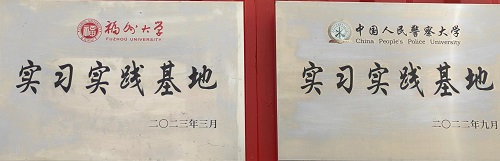 福州大学
FUZHOU UNIVERSITY
实习实践基地
二〇二三年三月
中国人民警察大学
China People's Police University
实习实践基地
二〇二二年九月